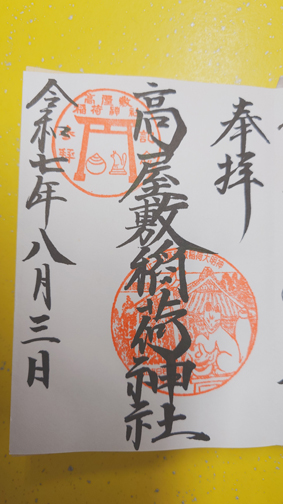 奉拝
高屋敷稲荷神社
令和七年八月三日
高屋敷
稲荷神社